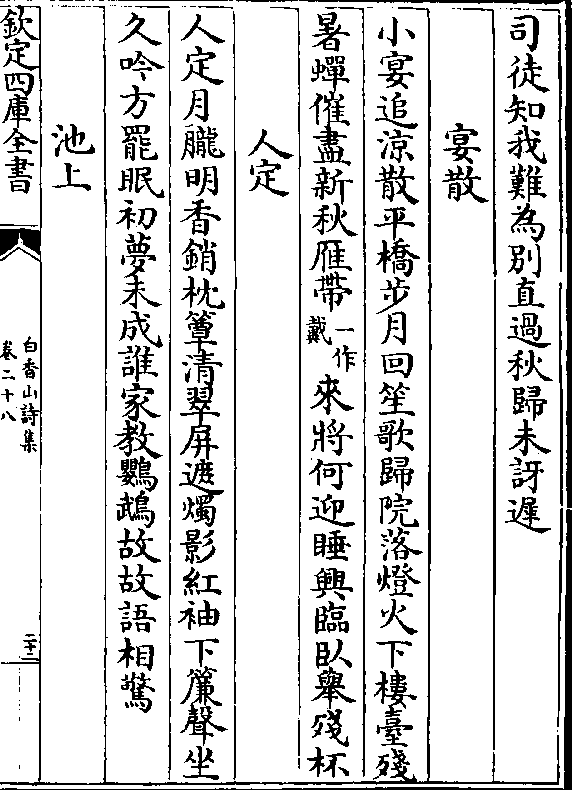 司徒知我難為別直過秋歸未訝遲
宴散
小宴追涼散平橋步月回笙歌歸院落燈火下樓臺殘
暑蟬催盡新秋雁帶一作戴來將何迎睡興臨卧舉殘杯
人定
人定月朧明香銷枕簟清翠屏遮燭影紅袖下簾聲坐
久吟方罷眠初夢未成誰家教鸚鵡故故語相驚
池上
欽定四庫全書
白香山詩集
卷二十八
二十二